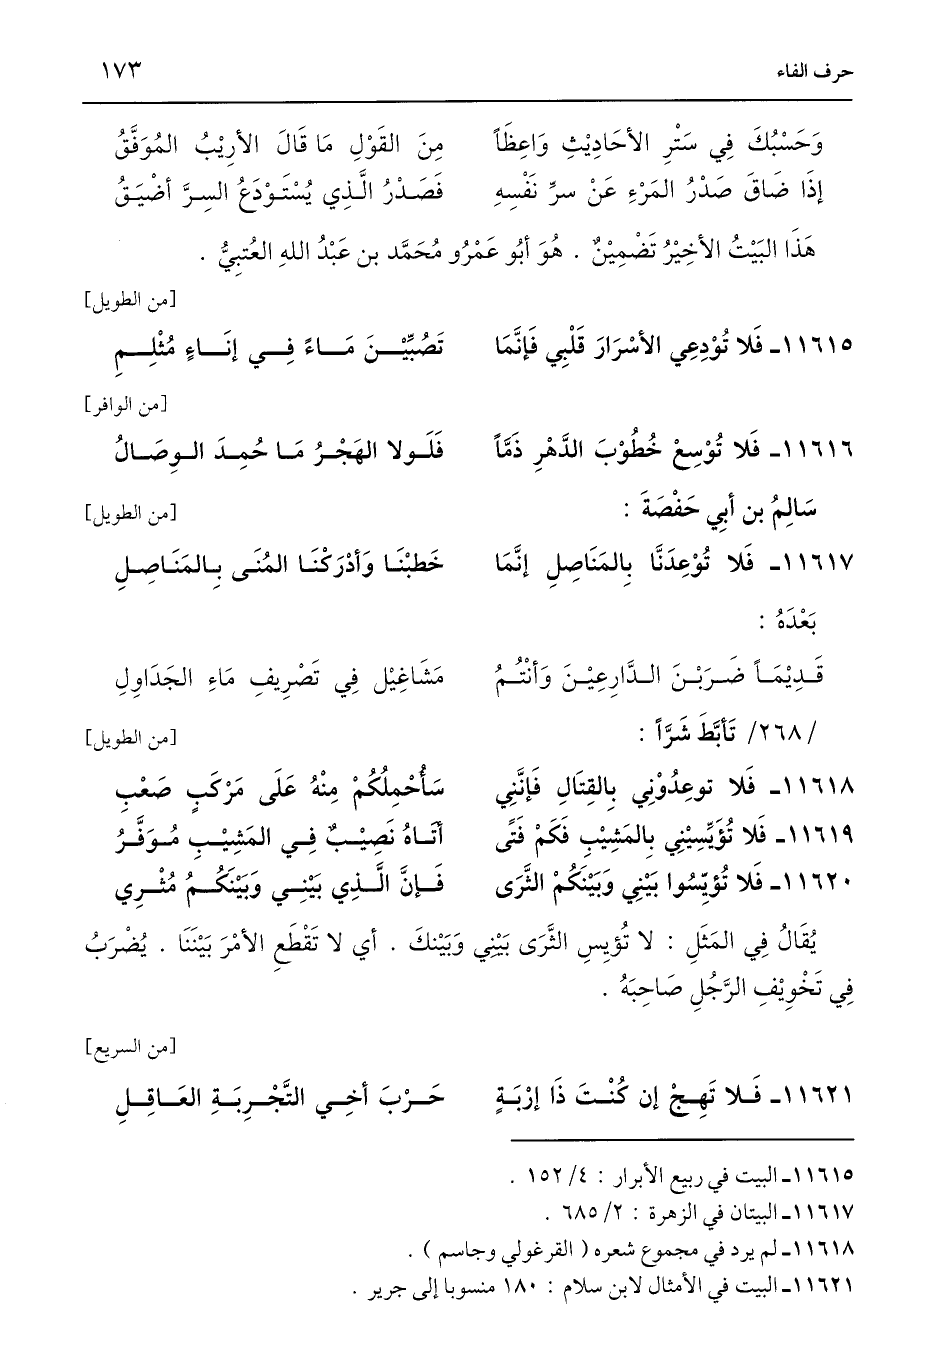 حرف الفاء ١٧٣
وَحَسْبُكَ فِي سَتْرِ الأَحَادِيْثِ وَاعِظَاً مِنَ القَوْلِ مَا قَالَ الأَرِيْبُ المُوَفَّقُ
إِذَا ضَاقَ صَدْرُ المَرْءِ عَنْ سرِّ نَفْسِهِ فَصَدْرُ الَّذِي يُسْتَوْدَعُ السِرَّ أَضْيَقُ
هَذَا البَيْتُ الأَخِيْرُ تَضْمِيْنٌ . هُوَ أَبُو عَمْرُو مُحَمَّد بن عَبْدُ اللهِ العُتبِيُّ .
[من الطويل]
١١٦١٥ـ فَلا تُوْدِعِي الأَسْرَارَ قَلْبِي فَإِنَّمَا تَصُبِّيْنَ مَاءً فِي إِنَاءٍ مُثْلِمِ
[من الوافر]
١١٦١٦ـ فَلا تُوْسِعْ خُطُوْبَ الدَّهْرِ ذَمَّاً فَلَولا الهَجْرُ مَا حُمِدَ الوِصَالُ
سَالِمُ بن أَبِي حَفْصَةَ : [من الطويل]
١١٦١٧ـ فَلا تُوْعِدَنَّا بِالمَنَاصِلِ إِنَّمَا خَطبْنَا وَأَدْرَكْنَا المُنَى بِالمَنَاصِلِ
بَعْدَهُ :
قَدِيْمَاً ضَرَبْنَ الدَّارِعِيْنَ وَأَنْتُمُ مَشَاغِيْل فِي تَصْرِيفِ مَاءِ الجَدَاوِلِ
/٢٦٨/ تَأَبَّطَ شَرَّاً : [من الطويل]
١١٦١٨ـ فَلا توعِدُوْنِي بِالقِتَالِ فَإِنَّنِي سَأُحْمِلُكُمْ مِنْهُ عَلَى مَرْكَبٍ صَعْبِ
١١٦١٩ـ فَلا تُؤَيِّسِيْنِي بِالمَشِيْبِ فَكَمْ فَتًى أَتَاهُ نَصِيْبٌ فِي المَشِيْبِ مُوَفَّرُ
١١٦٢٠ـ فَلا تُؤيّسُوا بَيْنِي وَبَيْنَكُمْ الثَّرَى فَإِنَّ الَّذِي بَيْنِي وَبَيْنَكُمُ مُثْرِي
يُقَالُ فِي المَثَلِ : لا تُؤيسِ الثَّرَى بَيْنِي وَبَيْنكَ . أي لا تَقْطَعِ الأمْرَ بَيْنَنَا . يُضْرَبُ
فِي تَخْوِيْفِ الرَّجُلِ صَاحِبَهُ .
[من السريع]
١١٦٢١ـ فَلا تَهِجْ إن كُنْتَ ذَا إِرْبَةٍ حَرْبَ أَخِي التَّجْرِبَةِ العَاقِلِ
١١٦١٥ـ البيت في ربيع الأبرار : ٤/ ١٥٢ .
١١٦١٧ـ البيتان في الزهرة : ٢/ ٦٨٥ .
١١٦١٨ـ لم يرد في مجموع شعره ( القرغولي وجاسم ) .
١١٦٢١ـ البيت في الأمثال لابن سلام : ١٨٠ منسوبا إلى جرير .